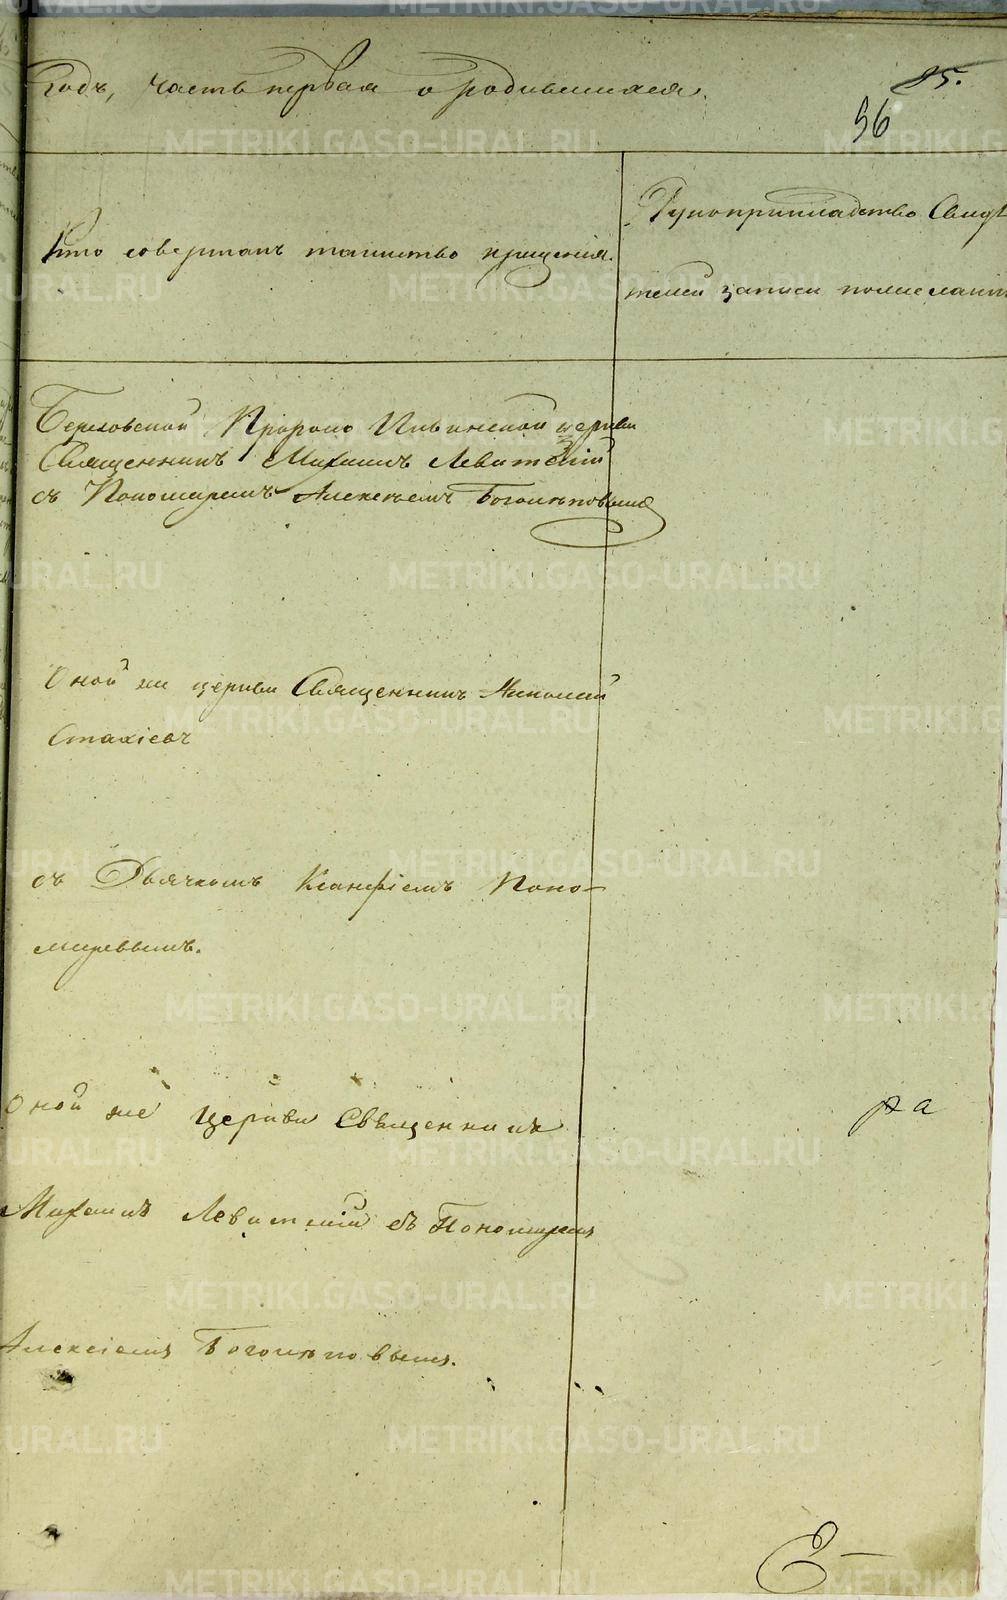 Годъ, часть первая о родившихся.
85.
96
Кто совершалъ таинство крещенія.
Рукоприкладство Свидѣ
телей записи по желанію
Береховской Пророко Ильинской церкви
Священникъ Михаилъ Левитскій
съ Пономаремъ Алексѣемъ Боголѣповымъ
Оной же церкви Священникъ Николай
Стахіевъ
съ Дьячкомъ Ксанфіемъ Поно-
маревымъ.
Оной же церкви Священникъ
Михаилъ Левитскій съ Пономаремъ
Алексіемъ Боголѣповымъ.
ра
METRIKI.GASO-URAL.RU